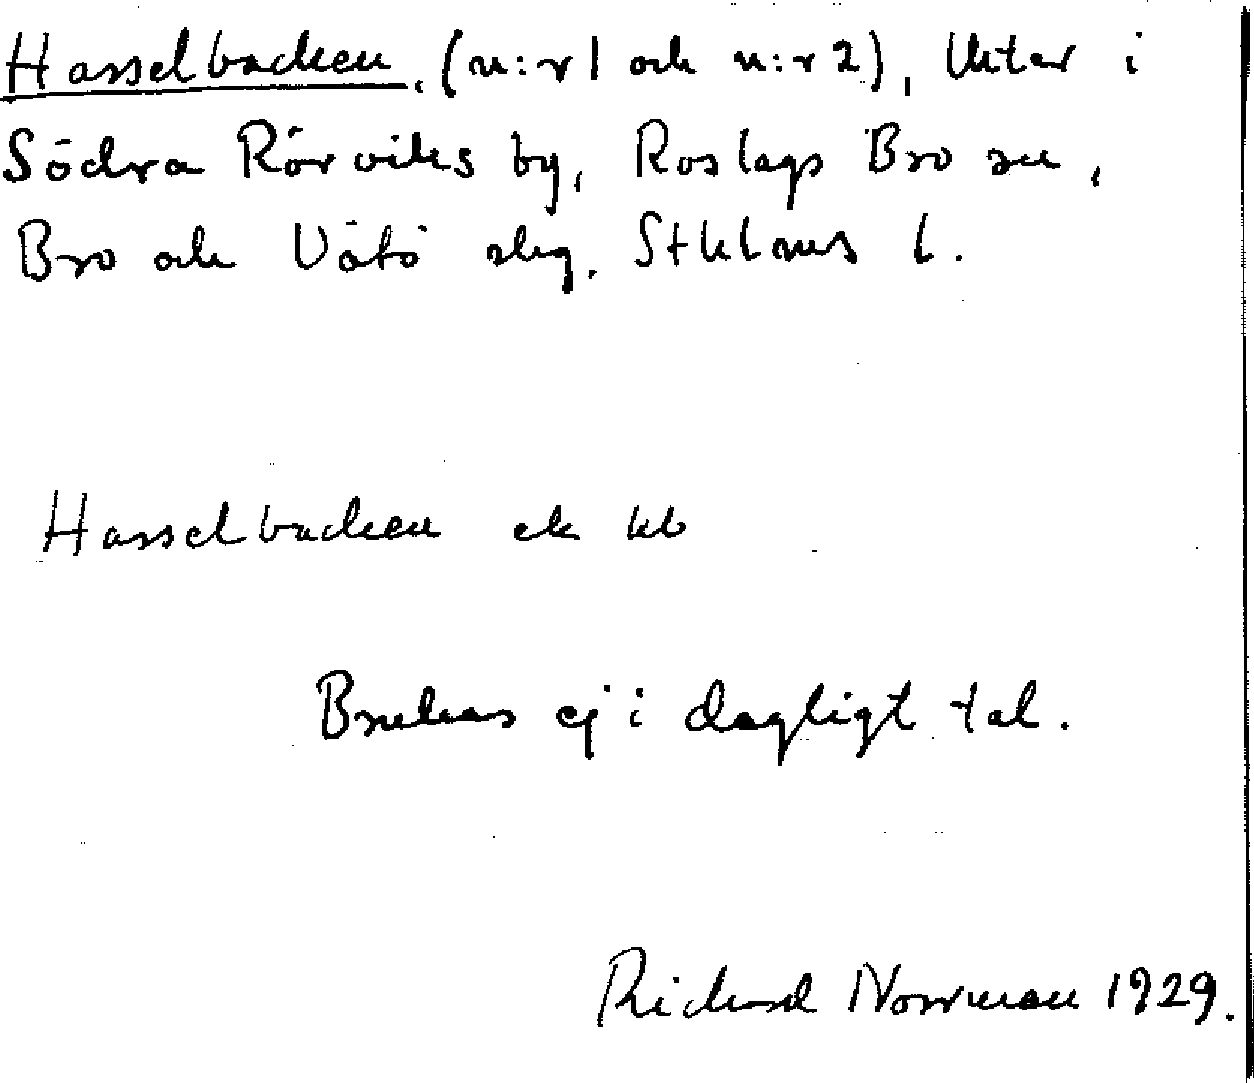 Hasselbacken. (n:r 1 och n:r 2), lhter i
Södra Rörviks by, Roslags Bro sn,
Bro och Vätö slg. Sthlms l.
Hasselbacken ek kb
Brukas ej i dagligt tal.
Richard Norrman 1929.